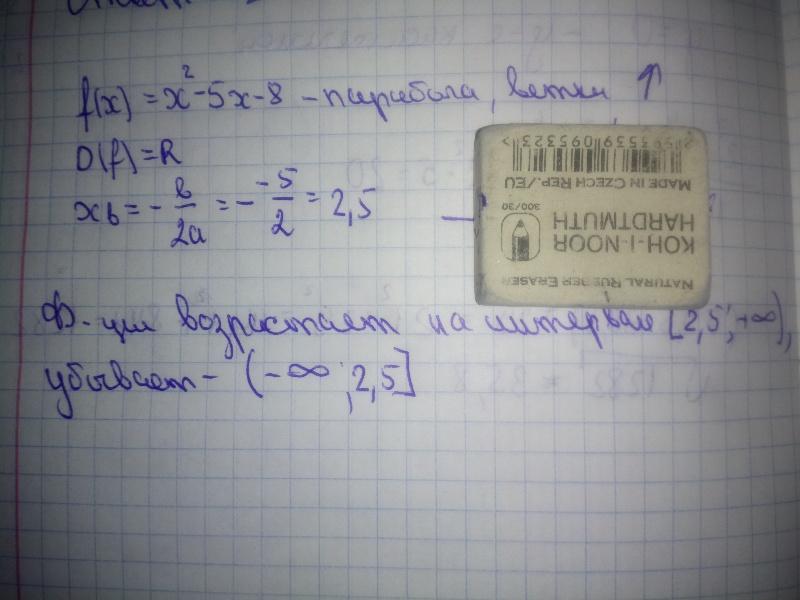 f(x) = x² - 5x - 8 - парабола, ветки ↑
D(f) = R
xb = - b/2a = - -5/2 = 2,5
2 593539 095323 >
MADE IN CZECH REP./EU
300/30
KOH-I-NOOR
HARDTMUTH
NATURAL RUBBER ERASER
Ф-ция возрастает на интервале [2,5; +∞),
убывает - (-∞; 2,5]